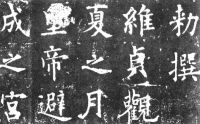 勅撰
維貞觀
夏之月
皇帝避
成之宮